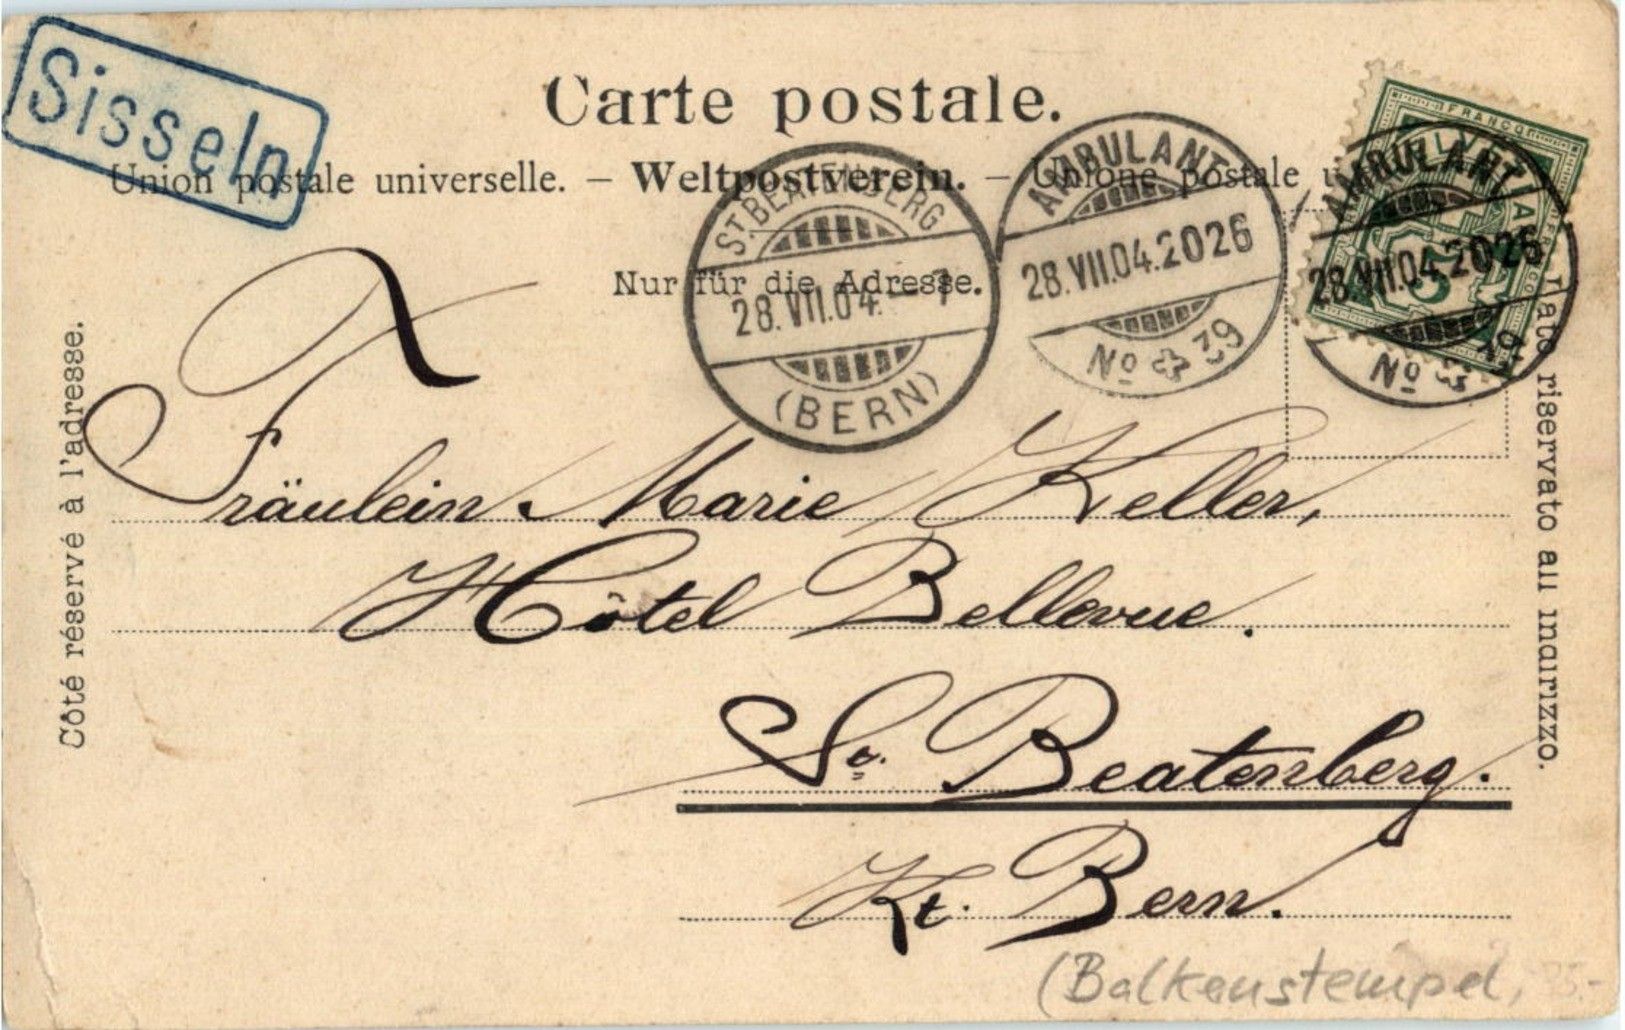 Sisseln
Carte postale.
Union postale universelle. – Weltpostverein. – Unione postale u
Nur für die Adresse.
ST. BEATENBERG
28.VII.04.– 7
(BERN)
AMBULANT
28.VII.04.2026
No 39
FRANCO
HELVETIA
5
AMBULANT
28.VII.04.2026
No 39
Côté réservé à l'adresse.
lato riservato all indirizzo.
Fräulein Marie Keller,
Hôtel Bellevue.
St. Beatenberg.
Kt. Bern.
(Balkenstempel,